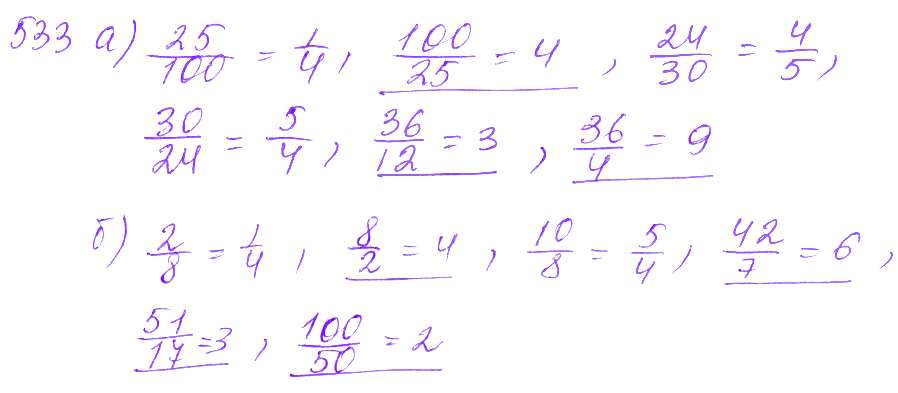 533 а) 25/100 = 1/4, 100/25 = 4, 24/30 = 4/5,
30/24 = 5/4, 36/12 = 3, 36/4 = 9
б) 2/8 = 1/4, 8/2 = 4, 10/8 = 5/4, 42/7 = 6,
51/17 = 3, 100/50 = 2